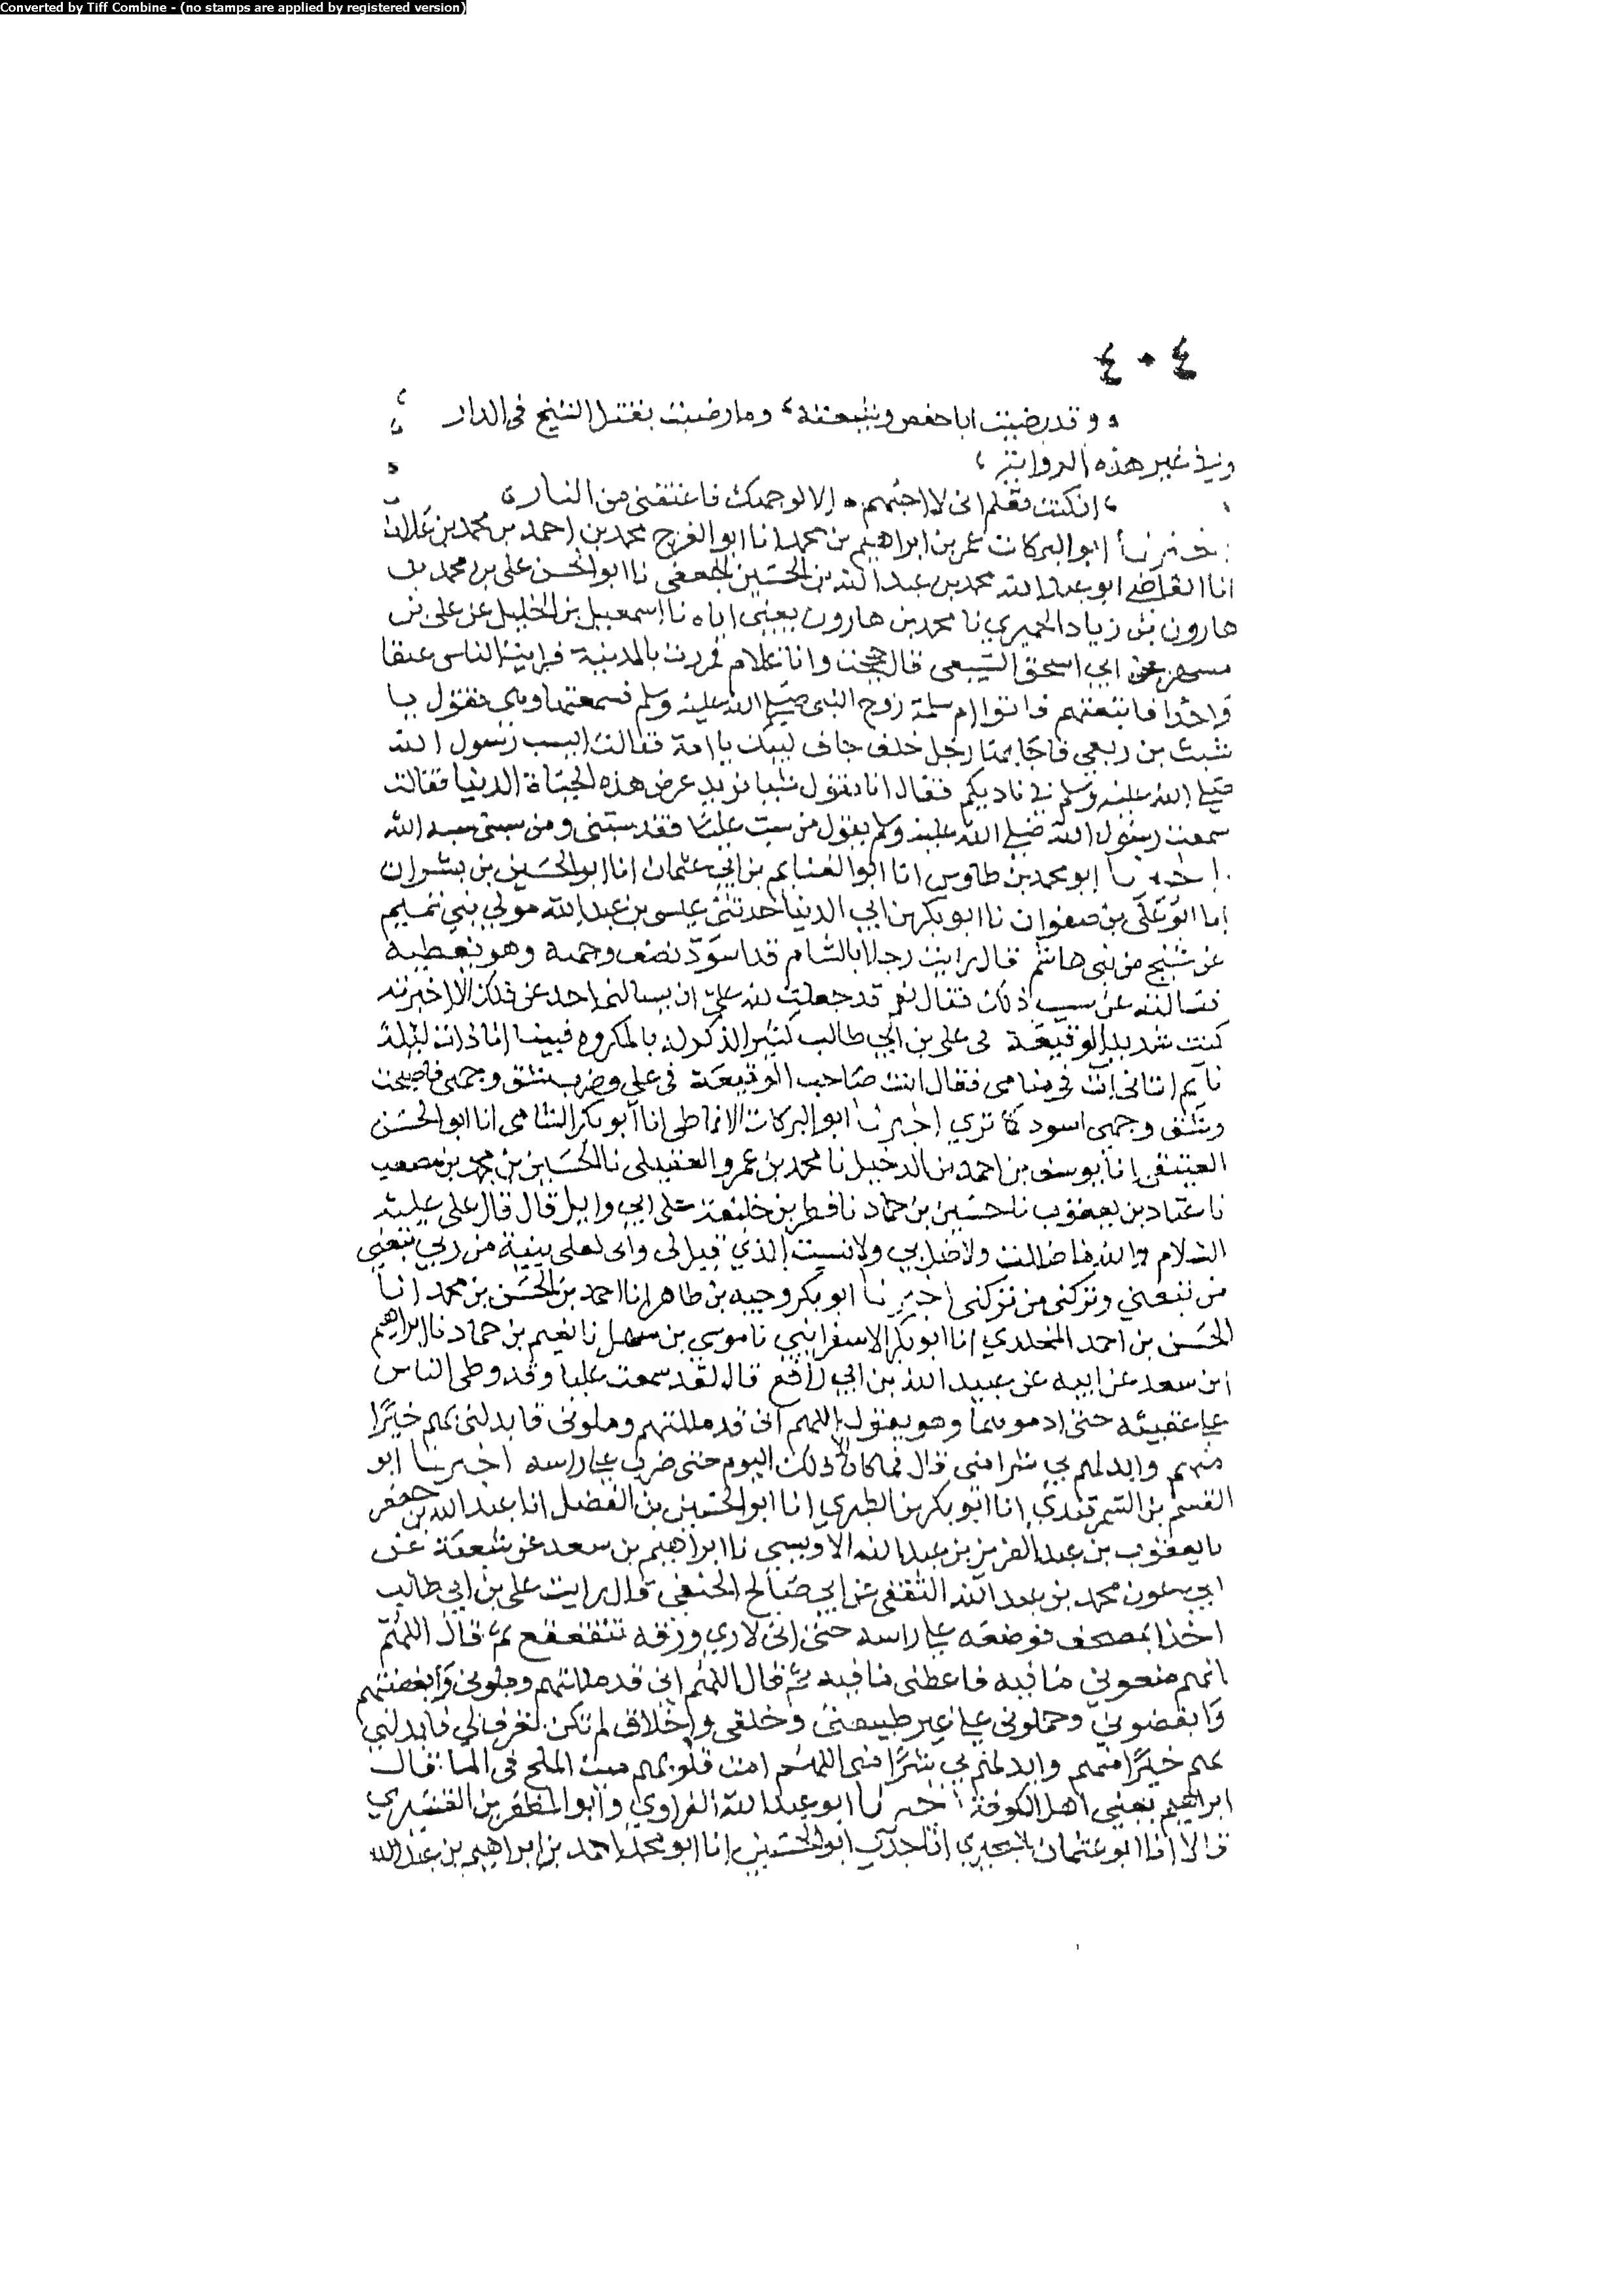 Converted by Tiff Combine - (no stamps are applied by registered version)
٤٠٤
وقد رضيت ابا حفص وشيعته وما رضيت بقتل الشيخ فى الدار
وفي غير هذه الرواية
ان كنت تعلم انى لا احبهم الا لوجهك فاعتقنى من النار
اخبرنا ابو البركات عمر بن ابراهيم بن محمد انا ابو الفرج محمد بن احمد بن محمد بن علان
انا القاضي ابو عبد الله محمد بن عبد الله بن الحسين الجعفى نا ابو الحسن على بن محمد بن
هارون بن زياد الحميري نا محمد بن هارون يعنى اباه نا اسمعيل بن الخليل عن على بن
مسهر عن ابي اسحق السبيعى قال حججت وانا غلام فمررت بالمدينة فرايت الناس عنقا
واحدا فاتبعتهم فاتوا ام سلمة زوج النبى صلى الله عليه وسلم فسمعتها وهى تقول يا
شبث بن ربعي فاجابها رجل جلف جاف لبيك يا امة فقالت ايسب رسول الله
صلى الله عليه وسلم في ناديكم فقال انا نقول شيئا نريد عرض هذه الحياة الدنيا فقالت
سمعت رسول الله صلى الله عليه وسلم يقول من سب عليا فقد سبنى ومن سبنى سبه الله
اخبرنا ابو محمد بن طاوس انا ابو الغنايم بن ابي عثمان انا ابو الحسين بن بشران
انا ابو على بن صفوان نا ابو بكر بن ابي الدنيا حدثنى عيسى بن عبد الله مولي بني تميم
عن شيخ من بنى هاشم قال رايت رجلا بالشام قد اسود نصف وجهه وهو يغطيه
فسالته عن سبب ذلك فقال نعم قد جعلت لله علي ان يسالنى احد عن ذلك الا اخبرته
كنت شديد الوقيعة فى على بن ابي طالب كثير الذكر له بالمكروه فبينا انا ذات ليلة
نايم اتانى آت فى منامى فقال انت صاحب الوقيعة فى على وضرب شق وجهى فاصبحت
وشق وجهى اسود كما تري اخبرنا ابو البركات الانماطى انا ابو بكر الشامى انا ابو الحسن
العتيقى انا يوسف بن احمد بن الدخيل نا محمد بن عمرو العقيلى نا الحسين بن محمد بن مصعب
نا عباد بن يعقوب نا حسين بن حماد نا فطر بن خليفة على ابي وايل قال قال على عليه
السلام والله ما ضللت ولا ضل بي ولا نسيت الذي قيل لى وانى لعلى بينة من ربي تبعنى
من تبعني وتركنى من تركنى اخبرنا ابو بكر وجيه بن طاهر انا احمد بن الحسن بن محمد انا
الحسن بن احمد المخلدي انا ابو بكر الاسفراييني نا موسى بن سهل نا نعيم بن حماد نا ابراهيم
ابن سعد عن ابيه عن عبيد الله بن ابي رافع قال لقد سمعت عليا وقد وطى الناس
على عقبيه حتى ادموهما وهو يقول اللهم انى قد مللتهم وملونى فابدلنى بهم خيرًا
منهم وابدلهم بي شرا منى قال فما كان الا ذلك اليوم حتى ضرب على راسه اخبرنا ابو
القسم بن السمرقندي انا ابو بكر بن الطبري انا ابو الحسين بن الفضل انا عبد الله بن جعفر
نا يعقوب بن عبد العزيز بن عبد الله الاويسي نا ابراهيم بن سعد عن شعبة عن
ابي عون محمد بن عبد الله الثقفى عن ابي صالح الحنفى قال رايت على بن ابي طالب
اخذا بمصحف فوضعه على راسه حتى انى لاري ورقه تتقعقع ثم قال اللهم
انهم منعونى ما فيه فاعطنى ما فيه ثم قال اللهم انى قد مللتهم وملونى وابغضتهم
وابغضونى وحملونى على غير طبيعتى وخلقى واخلاق لم تكن تعرف لي فابدلني
بهم خيرًا منهم وابدلهم بي شرًا منى اللهم امت قلوبهم ميث الملح فى الما قال
ابراهيم يعنى اهل الكوفة اخبرنا ابو عبد الله الفراوي وابو المظفر بن القشيري
قالا انا ابو عثمان البحيري انا جدي ابو الحسين انا ابو محمد احمد بن ابراهيم بن عبد الله